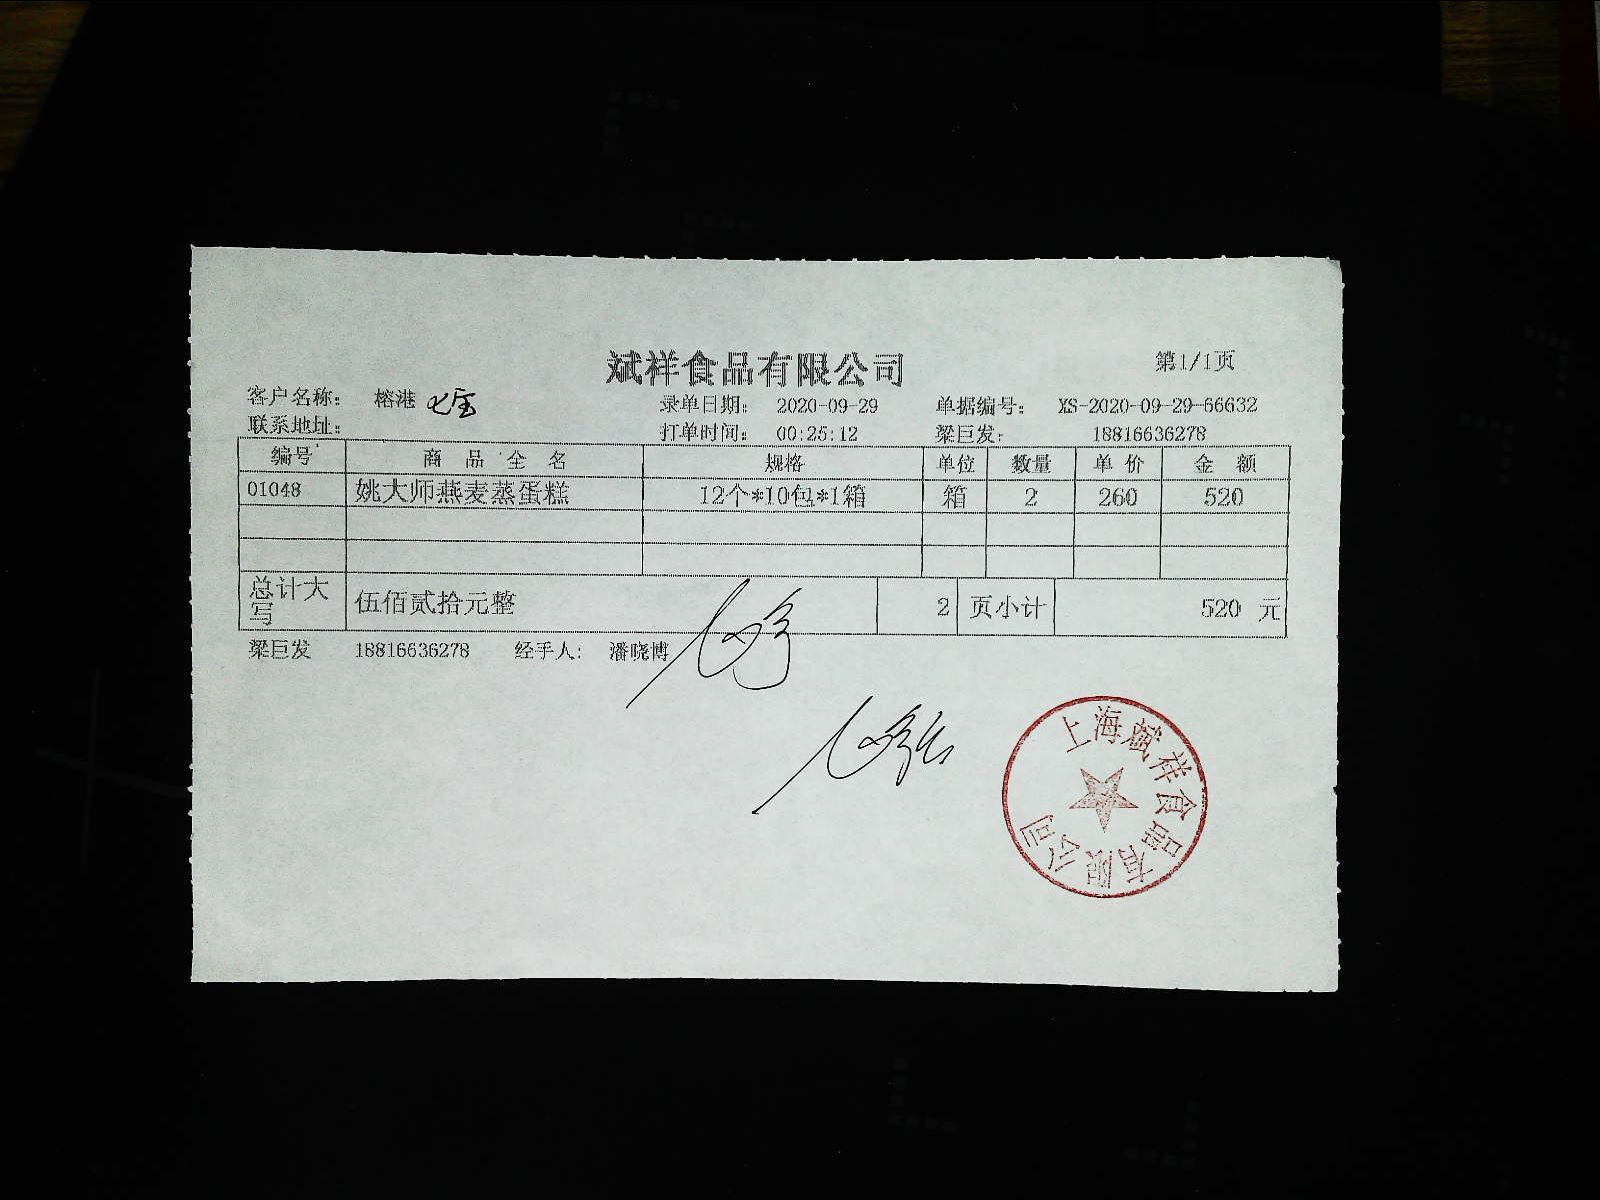 斌祥食品有限公司
第1/1页
客户名称: 榕港 七宝
录单日期: 2020-09-29
单据编号: XS-2020-09-29-66632
联系地址:
打单时间: 00:25:12
梁巨发: 18816636278
编号 商品全名 规格 单位 数量 单价 金额
01048 姚大师燕麦蒸蛋糕 12个*10包*1箱 箱 2 260 520
总计大写 伍佰贰拾元整 2 页小计 520 元
梁巨发 18816636278 经手人: 潘晓博
上海斌祥食品有限公司